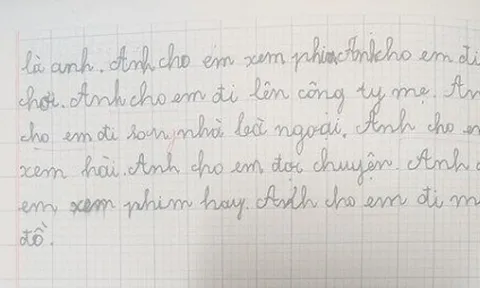 là anh. Anh cho em xem phim Anh cho em đi
chơi. Anh cho em đi lên công ty mẹ. An
cho em đi sang nhà bà ngoại. Anh cho em
xem hài. Anh cho em đọc chuyện. Anh c
em xem phim hay. Anh cho em đi m
đồ.